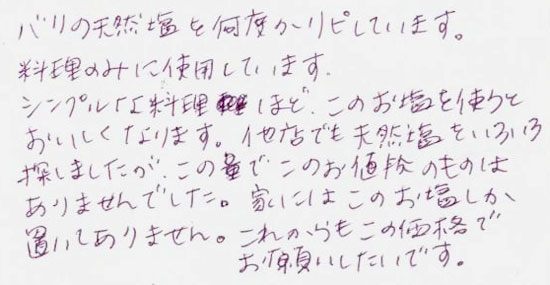 バリの天然塩を何度かリピしています。
料理のみに使用しています.
シンプルな料理ほど、このお塩を使うと
おいしくなります。他店でも天然塩をいろいろ
探しましたが、この量でこのお値段のものは
ありませんでした。家にはこのお塩しか
置いてありません。これからもこの価格で
お願いしたいです。